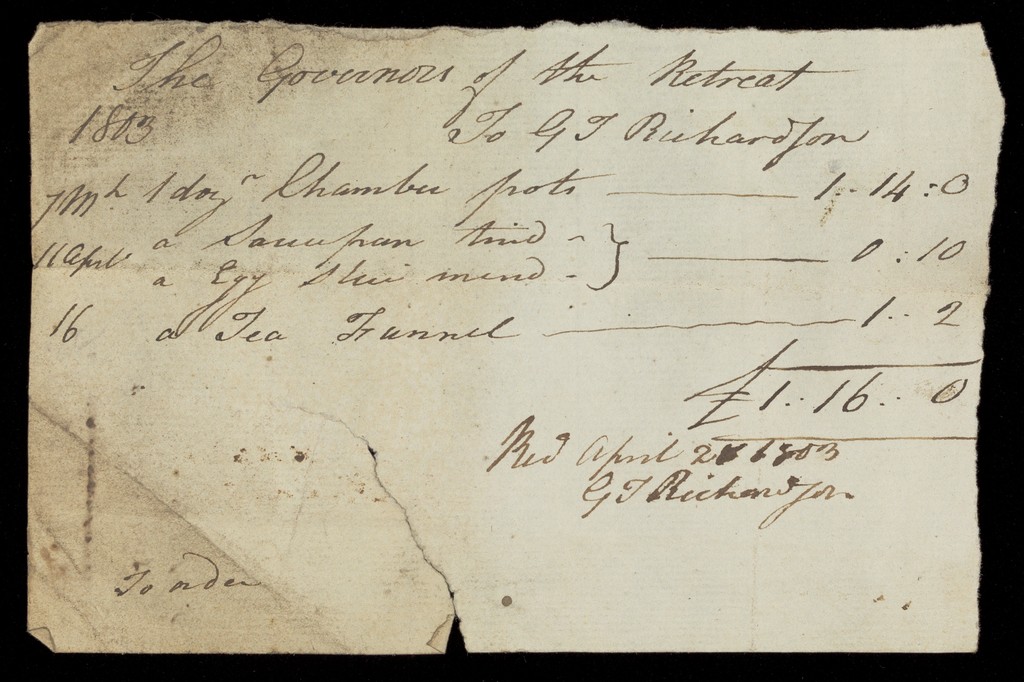 The Governors of the Retreat
1803 To G T Richardson
7 Mh 1 dozn Chamber pots 1 .. 14 : 0
11 April a Saucepan tind - } 0 : 10
a Egg Slice mend -
16 a Tea Funnel 1 .. 2
£1 .. 16 .. 0
Recd April 1803
G T Richardson
To order